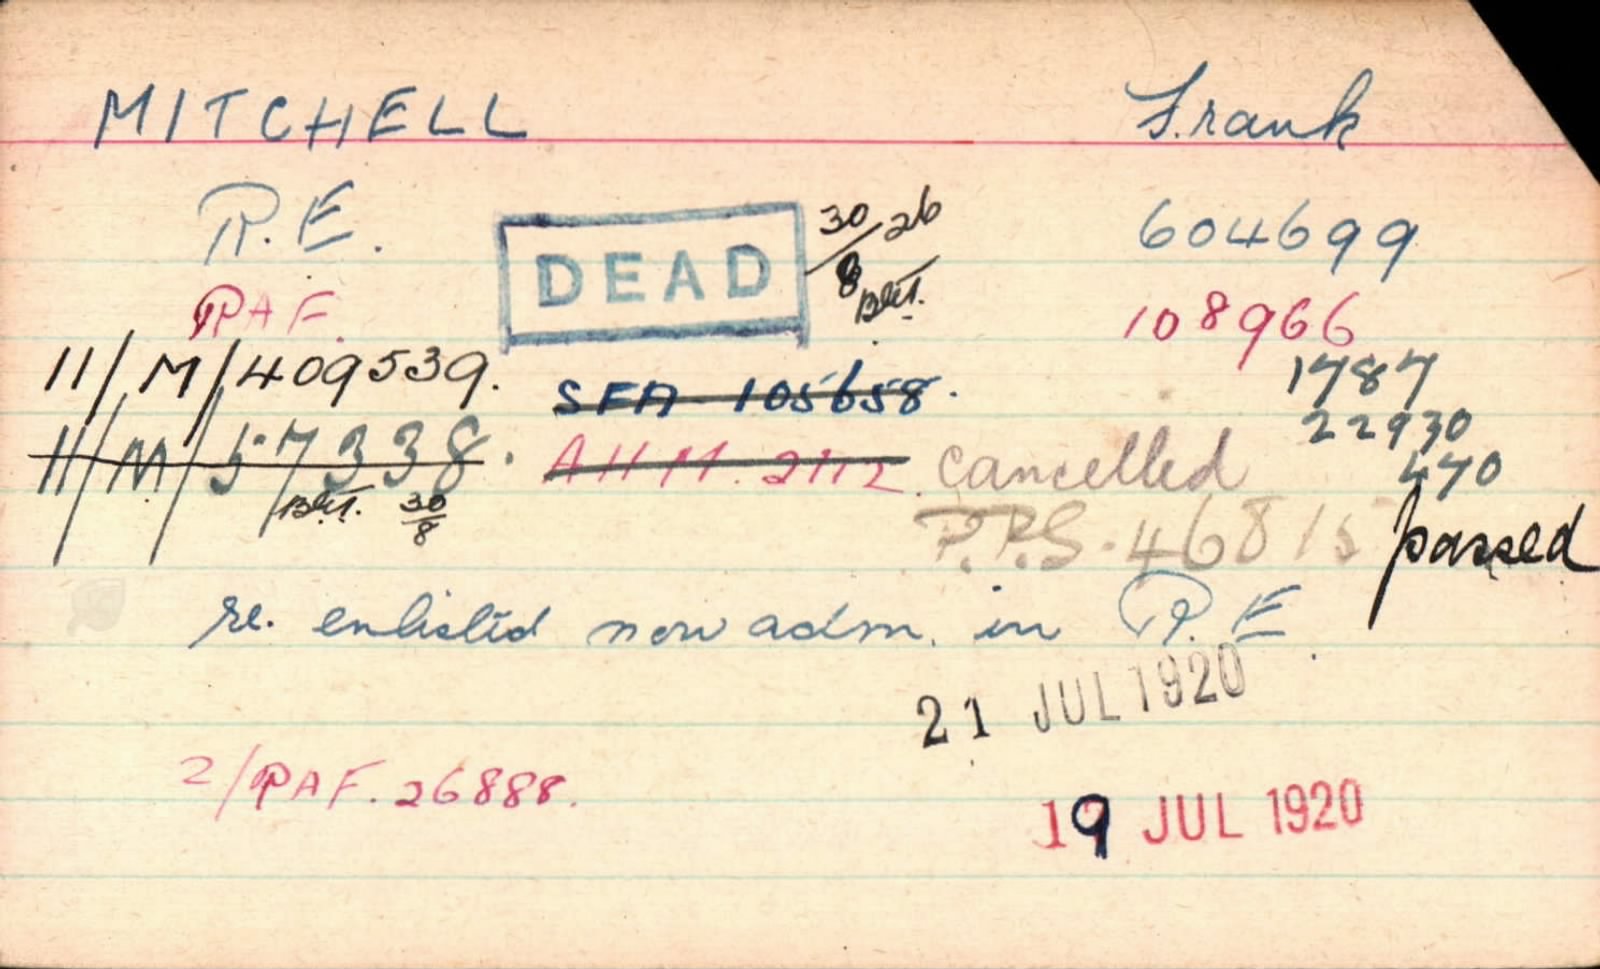 MITCHELL Frank
R.E. DEAD 30/8 26 604699
RAF. 108966
11/M/409539. SFA 105658. 1787
22930
11/M/57338. AHM. 2112 cancelled 470
30/8 P.P.S. 46815 passed
re. enlisted now adm. in R.E
21 JUL 1920
2/RAF. 26888.
19 JUL 1920